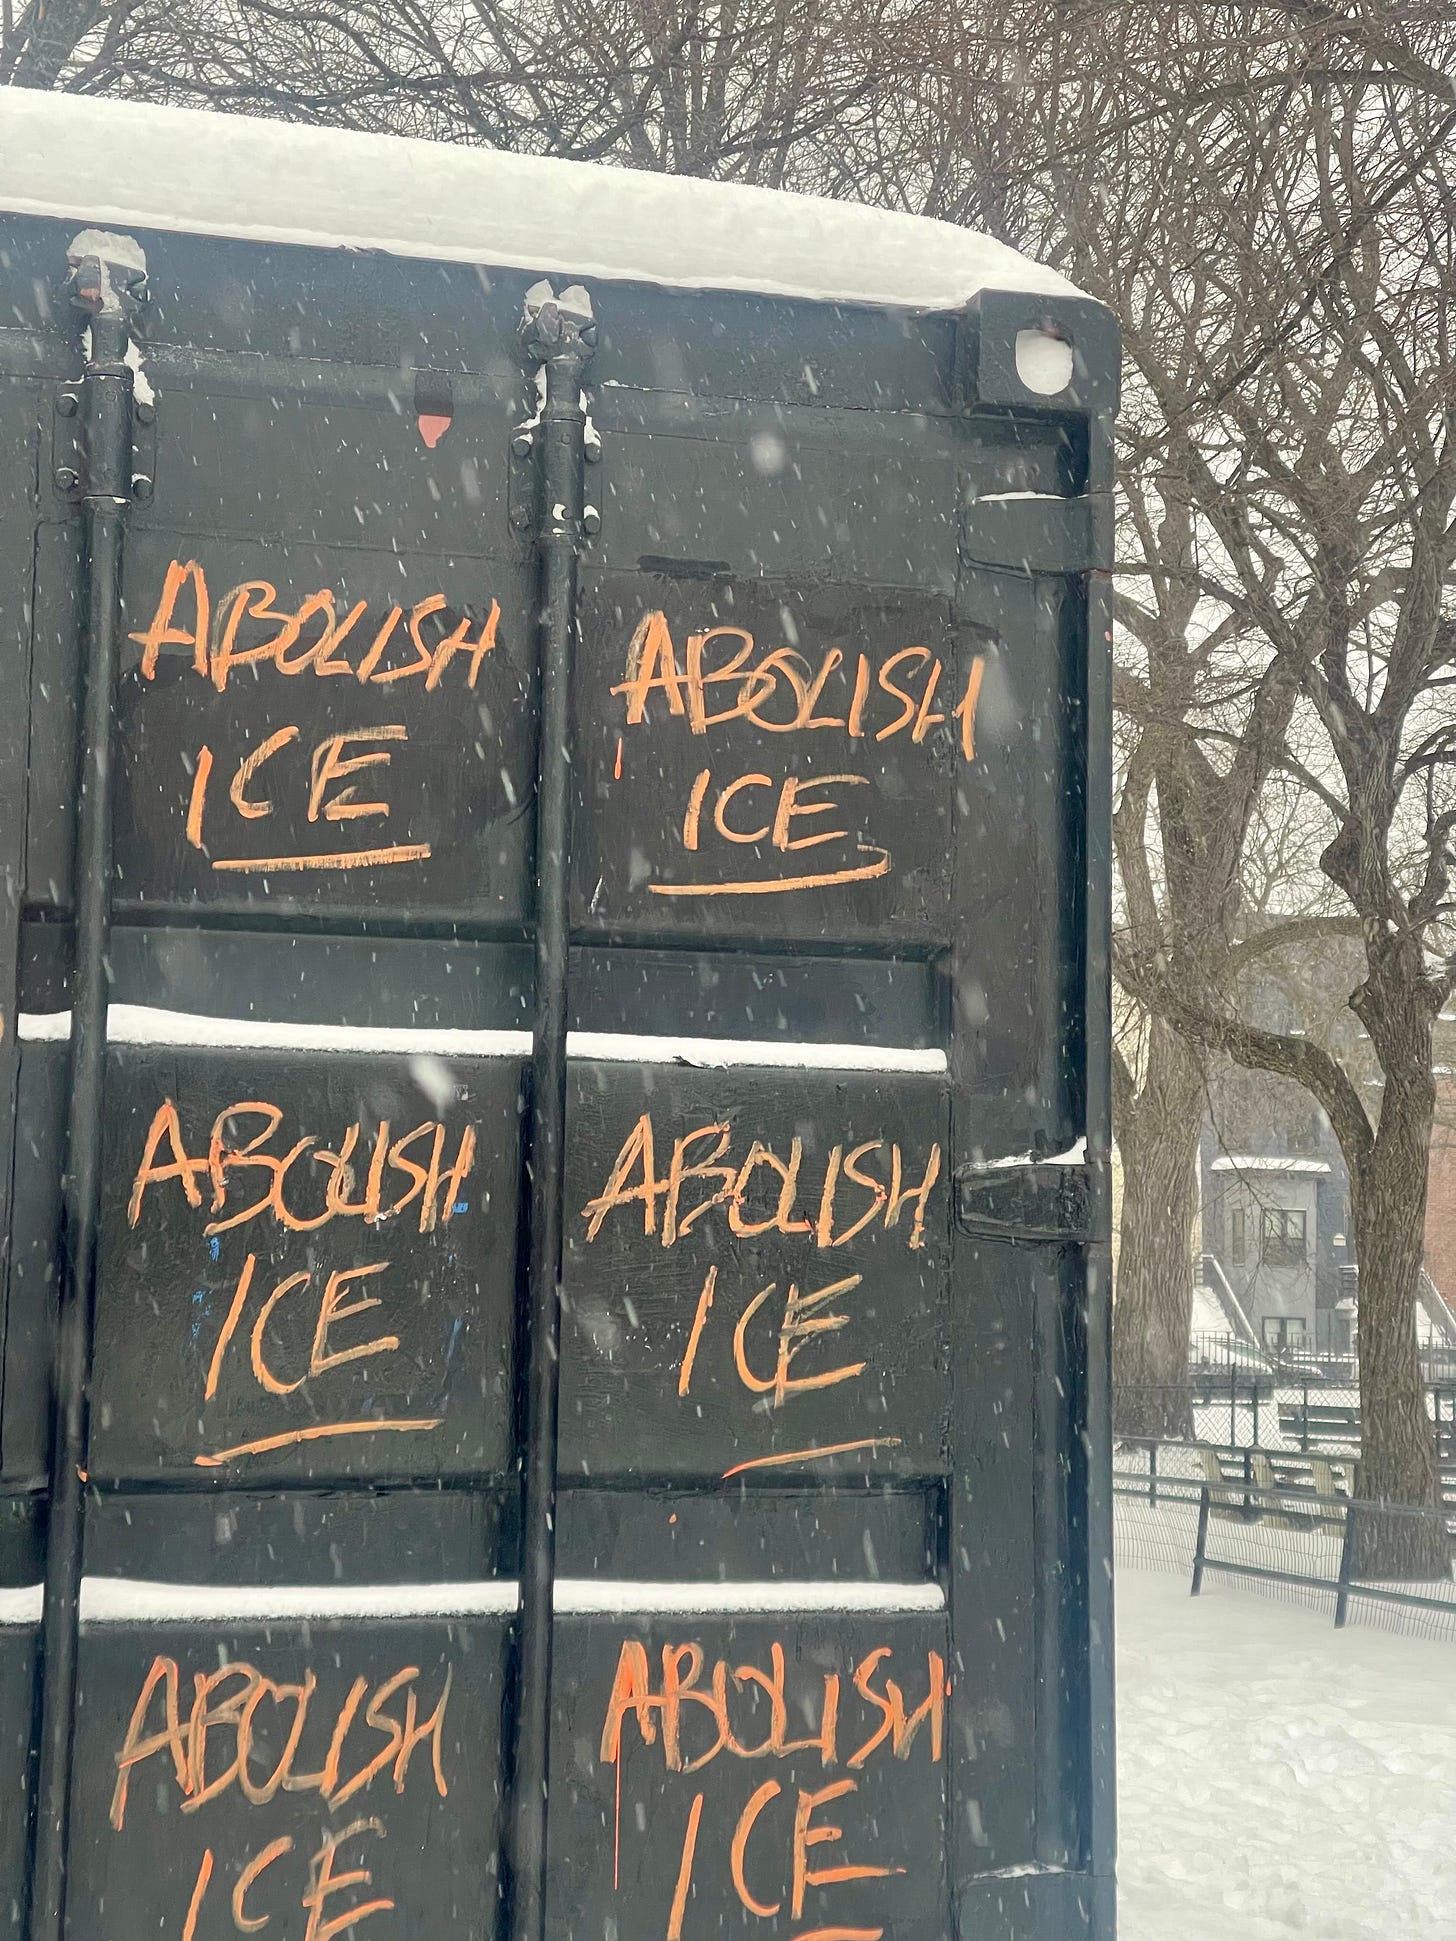 ABOLISH
ICE
ABOLISH
ICE
ABOLISH
ICE
ABOLISH
ICE
ABOLISH
ICE
ABOLISH
ICE